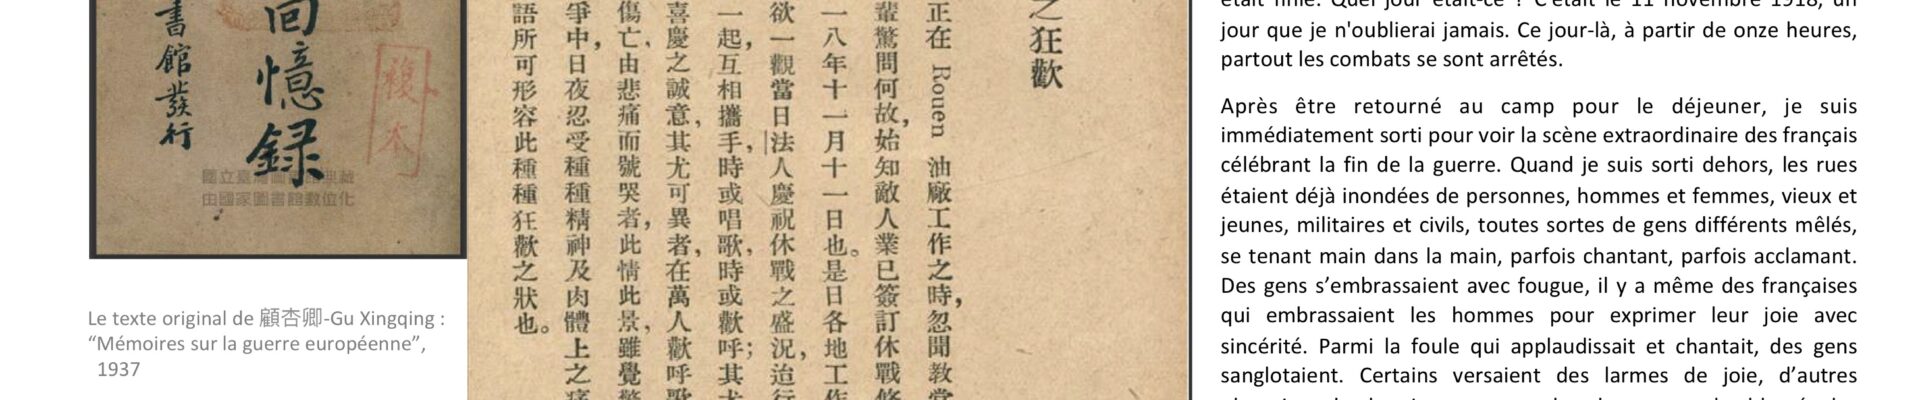 回憶錄
書館發行
複本
國立臺灣圖書館典藏
由國家圖書館數位化
Le texte original de 顧杏卿-Gu Xingqing :
“Mémoires sur la guerre européenne”,
1937
之狂歡
正在 Rouen 油廠工作之時，忽聞教堂
輩驚問何故，始知敵人業已簽訂休戰條
一八年十一月十一日也。是日各地工作
欲一觀當日法人慶祝休戰之盛況，迨行
一起，互相攜手，時或唱歌，時或歡呼；其尤
喜慶之誠意，其尤可異者，在萬人歡呼歌
傷亡，由悲痛而號哭者，此情此景，雖覺驚
爭中，日夜忍受種種精神及肉體上之痛
語所可形容此種種狂歡之狀也。
était finie. Quel jour était-ce ? C'était le 11 novembre 1918, un
jour que je n'oublierai jamais. Ce jour-là, à partir de onze heures,
partout les combats se sont arrêtés.
Après être retourné au camp pour le déjeuner, je suis
immédiatement sorti pour voir la scène extraordinaire des français
célébrant la fin de la guerre. Quand je suis sorti dehors, les rues
étaient déjà inondées de personnes, hommes et femmes, vieux et
jeunes, militaires et civils, toutes sortes de gens différents mêlés,
se tenant main dans la main, parfois chantant, parfois acclamant.
Des gens s’embrassaient avec fougue, il y a même des françaises
qui embrassaient les hommes pour exprimer leur joie avec
sincérité. Parmi la foule qui applaudissait et chantait, des gens
sanglotaient. Certains versaient des larmes de joie, d’autres